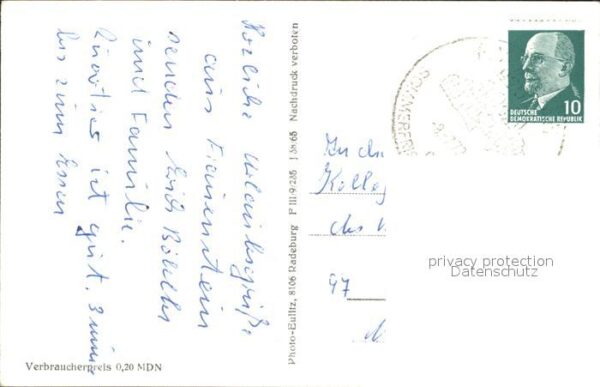 Herzliche Urlaubsgrüße
aus Frauenstein
senden Erich
und Familie.
Quartier ist gut. 3 min
bis zum Essen
Verbraucherpreis 0,20 MDN
Photo-Eulitz, 8106 Radeburg P III/9/285 J 58/65 Nachdruck verboten
An die
des
97
DEUTSCHE
DEMOKRATISCHE REPUBLIK
10
privacy protection
Datenschutz